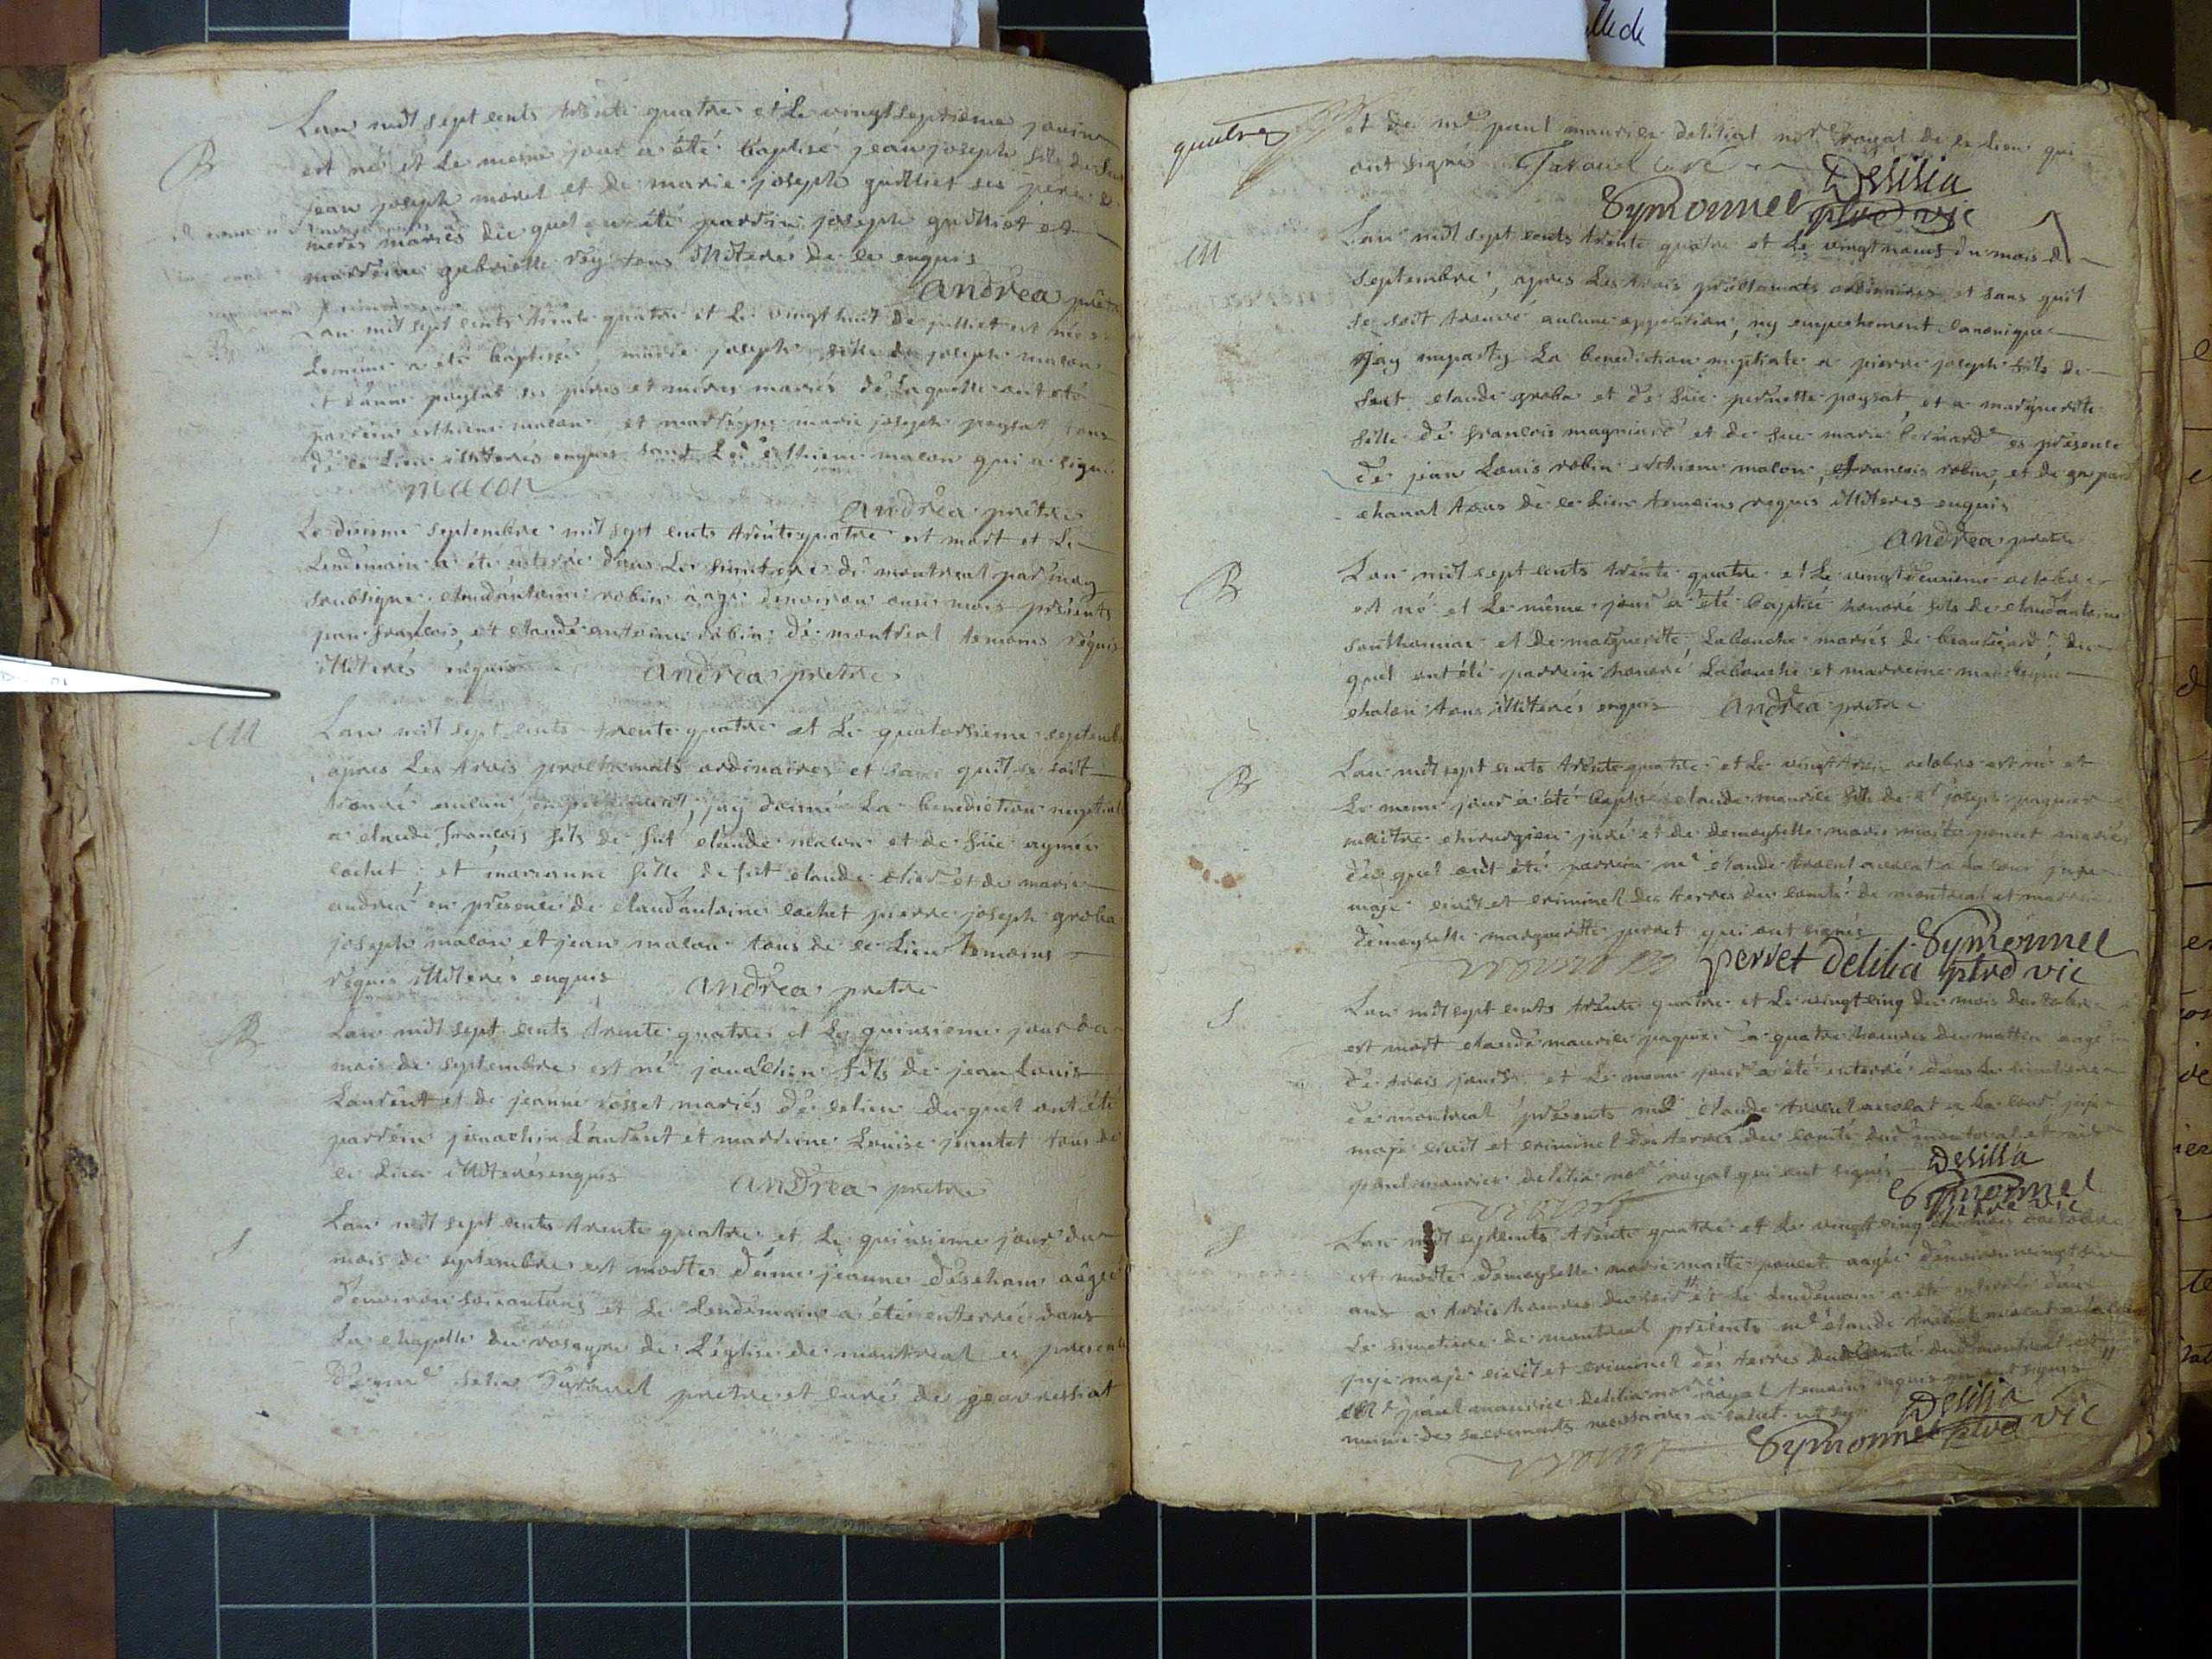 Lan mil sept cents trente quatre et le vingt septieme
B
est né et le meme jour a été baptisé jean joseph fils de
jean joseph morel et de marie joseph guilliet ses pere et
meres mariés du quel a été parrin joseph guilliet et
marreine gabrielle rey tous illiterés de ce enquis
andrea prêtre
Lan mil sept cents trente quatre et le vingt huit de juilliet est née
Le meme a été baptisée marie joseph fille de joseph macon
et danne poysat ses peres et meres mariés de laquelle ont été
parrein esthiene macon et marreine marie joseph poysat tous
de ce lieu illiterés enquis sauf led esthiene macon qui a signé
macon
andréa prêtre
S
Le disieme septembre mil sept cents trente quatre est mort et le
Lendemain a été enterré dans le simetiere de montreal par moy
soubsigné claudantoine robin aagé denviron onse mois présents
jean françois et claude antoine robin de montreal temoins réquis
illiterés enquis andréa prêtre
M
Lan mil sept cents trente quatre et le quatorsieme septemb
apres les trois proclamats ordinaires et sans quil se soit
trouvé aucun empechement, jay donné la benediction nuptiale
a claude françois fils de fut claude macon et de füe aymée
cochet; et marianne fille de fut claude et de marie
andréa en présence de claudantoine cochet pierre joseph groba
joseph macon et jean macon tous de ce lieu temoins
réquis illiterés enquis andréa pretre
B
Lan mil sept cents trente quatre et le quinsieme jour du
mois de septembre est né jouachin fils de jean Louis
Laurent et de jeanne rosset mariés de ce lieu du quel ont été
parrein jouachin Laurent et marreine Louise jantet tous de
ce lieu illiterés enquis andréa pretre
S
Lan mil sept cents trente quatre et le quinsieme jour du
mois de septembre est morte dame jeanne deseham aâgée
denviron soixantans et le lendemain a été enterrée dans
La chapelle du rosayre de l'église de montreal es presence
De mre Taravel pretre et curé de geovressiat
quatre
et de me paul maurice delilia nore royal de ce lieu qui
ont signés Taravel curé
Delilia
Symonnet ptre vic
M
Lan mil sept cents trente quatre et le vingt neuf du mois de
septembre, apres les trois proclamats ordinaires et sans quil
se soit trouvé aulcune opposition, ny empechement canonique
jay imparty la benediction nuptiale a pierre joseph fils de
feut claude groba et de füe pernette poysat, et a marguerite
fille de françois magniard et de füe marie bernard es présence
de jean Louis robin esthiene macon, françois robin, et de gaspard
chanal tous de ce lieu temoins réquis illiterés enquis
andréa pretre
B
Lan mil sept cents trente quatre et le vingt deuxieme octobre
est né et le même jour a été baptisé honoré fils de claudantoine
southonnax et de marguerite Labouche mariés de beauregard, du
quel ont été parrein honoré Labouche et marreine
chalon tous illiterés enquis andréa pretre
B
Lan mil sept cents trente quatre et le vingt trois octobre est né et
Le meme jour a été baptisé claude maurice fils de sr joseph paquier
maitre chirurgien juré et de demoyselle marie poncet mariés
du quel ont été parrein me claude avocat a la cour juge
maje civil et criminel des terres du comté de montreal et marreine
demoyselle marguerite perret qui ont signés
perret Delilia Symonnet
ptre vic
S
Lan mil sept cents trente quatre et le vingt cinq du mois doctobre
est mort claude maurice paquier a quatre heures du mattin aagé
de trois jours et le meme jour a été enterré dans le simetiere
de montreal présents me claude avocat a la cour juge
maje civil et criminel des terres du comté dud montreal et
paul maurice delilia nore royal qui ont signés
Delilia
Symonnet
ptre vic
S
Lan mil sept cents trente quatre et le vingt cinq du mois doctobre
est morte demoyselle marie poncet aagée denviron vingt
ans a trois heures du soir et le lendemain a été enterrée dans
Le simetiere de montreal présents me claude avocat a la cour
juge maje civil et criminel des terres du comté dud montreal et
me paul maurice delilia nore royal temoins requis qui ont signés
munie des sacrements necessaires a salut
Delilia
Symonnet ptre vic